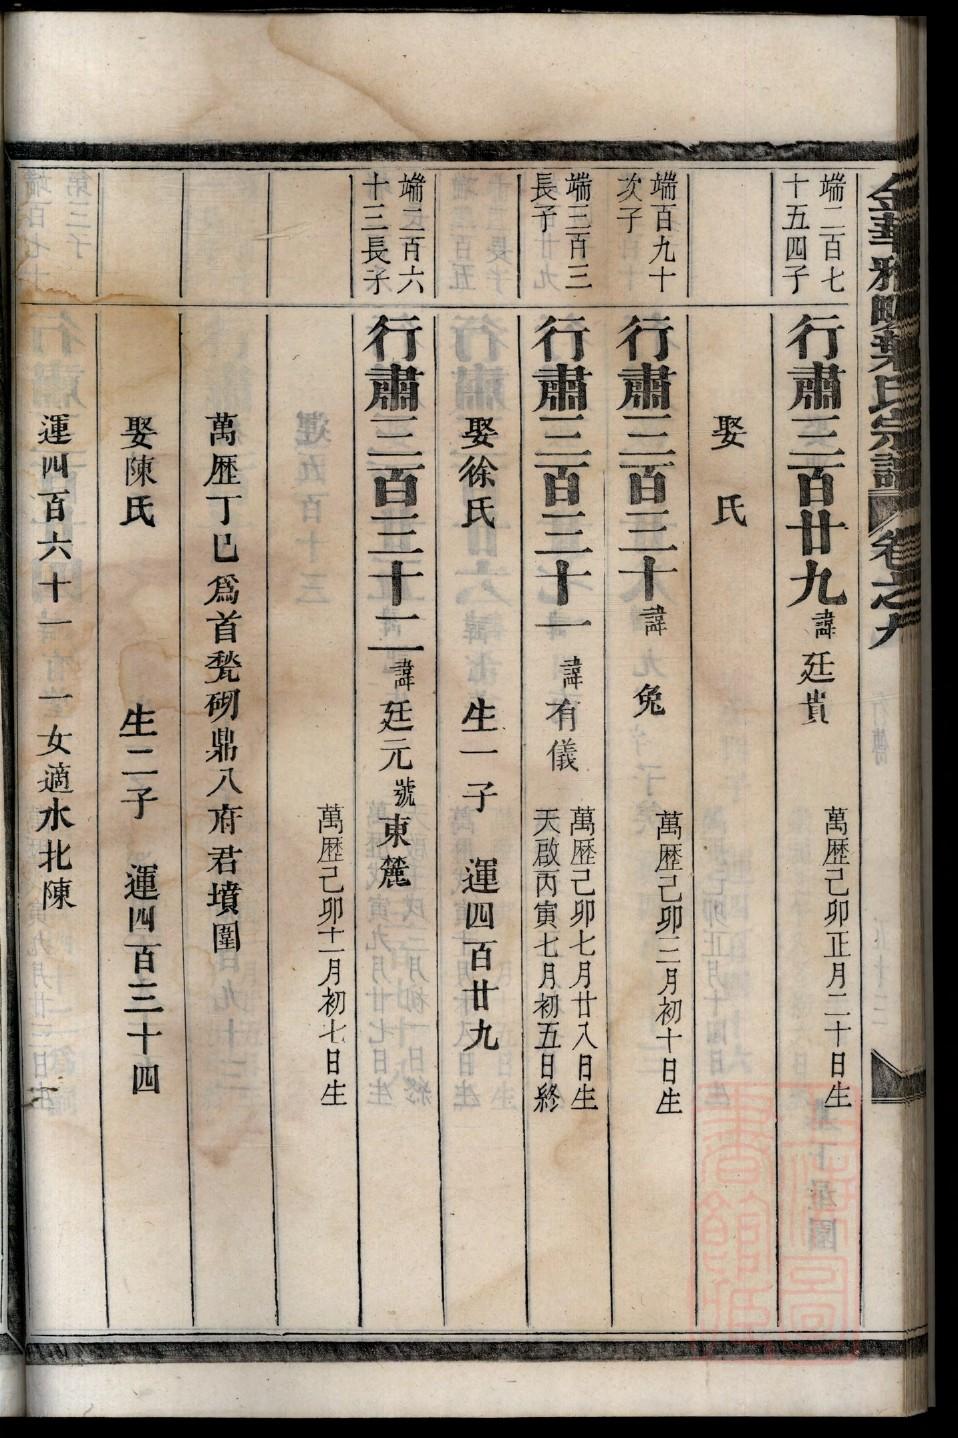 金華雅畈葉氏宗譜 卷之九
行傳
端二百七
十五四子
行肅三百廿九諱廷貴
萬歷己卯正月二十日生
娶 氏
端百九十
次子
行肅三百三十諱兔
萬歷己卯三月初十日生
端三百三
長子
行肅三百三十一諱有儀
萬歷己卯七月廿八日生
天啟丙寅七月初五日終
娶徐氏 生一子 運四百廿九
端二百六
十三長子
行肅三百三十二諱廷元號東麓
萬歷己卯十一月初七日生
萬歷丁巳為首甃砌鼎八府君墳圍
娶陳氏 生二子 運四百三十四
運四百六十一 一女適水北陳